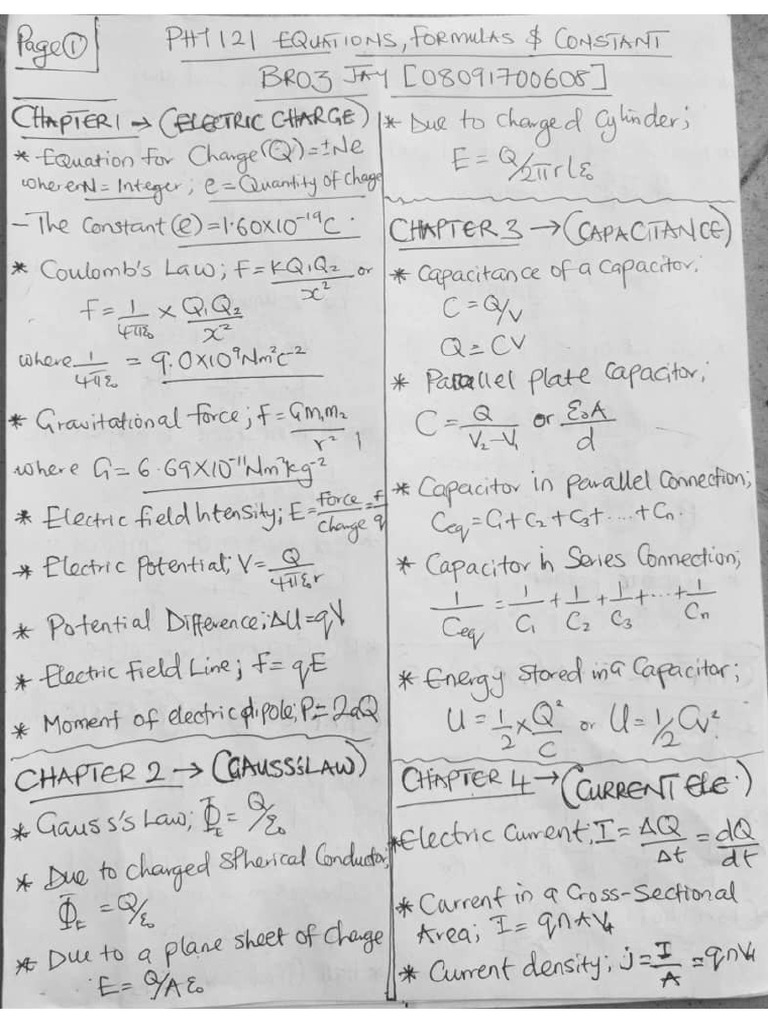 Page ①
PHY 121 EQUATIONS, FORMULAS & CONSTANT
BRO3 JAY [08091700608]
CHAPTER 1 → (ELECTRIC CHARGE)
* Equation for Charge (Q) = ±Ne
where N = Integer; e = Quantity of Chage
- The Constant (e) = 1.60X10⁻¹⁹C.
* Coulomb's Law; F = KQ₁Q₂/x² or
F = 1/4πε₀ × Q₁Q₂/x²
where 1/4πε₀ = 9.0X10⁹Nm²C⁻²
* Gravitational Force; F = Gm₁m₂/r²
where G = 6.69X10⁻¹¹Nm²kg⁻²
* Electric field Intensity; E = Force/Charge = F/q
* Electric Potential; V = Q/4πε₀r
* Potential Difference; ΔU = qV
* Electric Field Line; F = qE
* Moment of electric dipole; P = 2aQ
CHAPTER 2 → (GAUSS'S LAW)
* Gauss's Law; Φ_E = Q/ε₀
* Due to charged Spherical Conductor;
Φ_E = Q/ε₀
* Due to a plane sheet of Charge
E = Q/Aε₀
* Due to charged Cylinder;
E = Q/2πrlε₀
CHAPTER 3 → (CAPACITANCE)
* Capacitance of a Capacitor.
C = Q/V
Q = CV
* Parallel plate Capacitor;
C = Q/V₂-V₁ or ε₀A/d
* Capacitor in parallel Connection;
Ceq = C₁ + C₂ + C₃ + .... + Cn.
* Capacitor in Series Connection;
1/Ceq = 1/C₁ + 1/C₂ + 1/C₃ + ... + 1/Cn
* Energy Stored in a Capacitor;
U = 1/2 × Q²/C or U = 1/2 CV².
CHAPTER 4 → (CURRENT ELE.)
* Electric Current; I = ΔQ/Δt = dQ/dt
* Current in a Cross-Sectional
Area; I = qnAVd
* Current density; j = I/A = qnVd